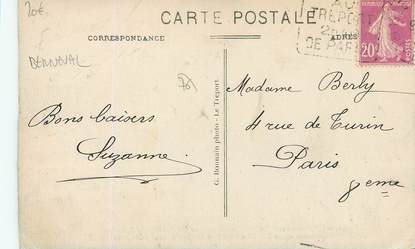 20€
CARTE POSTALE
AU
TREPORT
DE PAR
CORRESPONDANCE
ADRES
20c
BERNEVAL
76
Madame Berly
Bons baisers
4 rue de Turin
Suzanne
Paris
8eme
G. Bonnain photo - Le Tréport